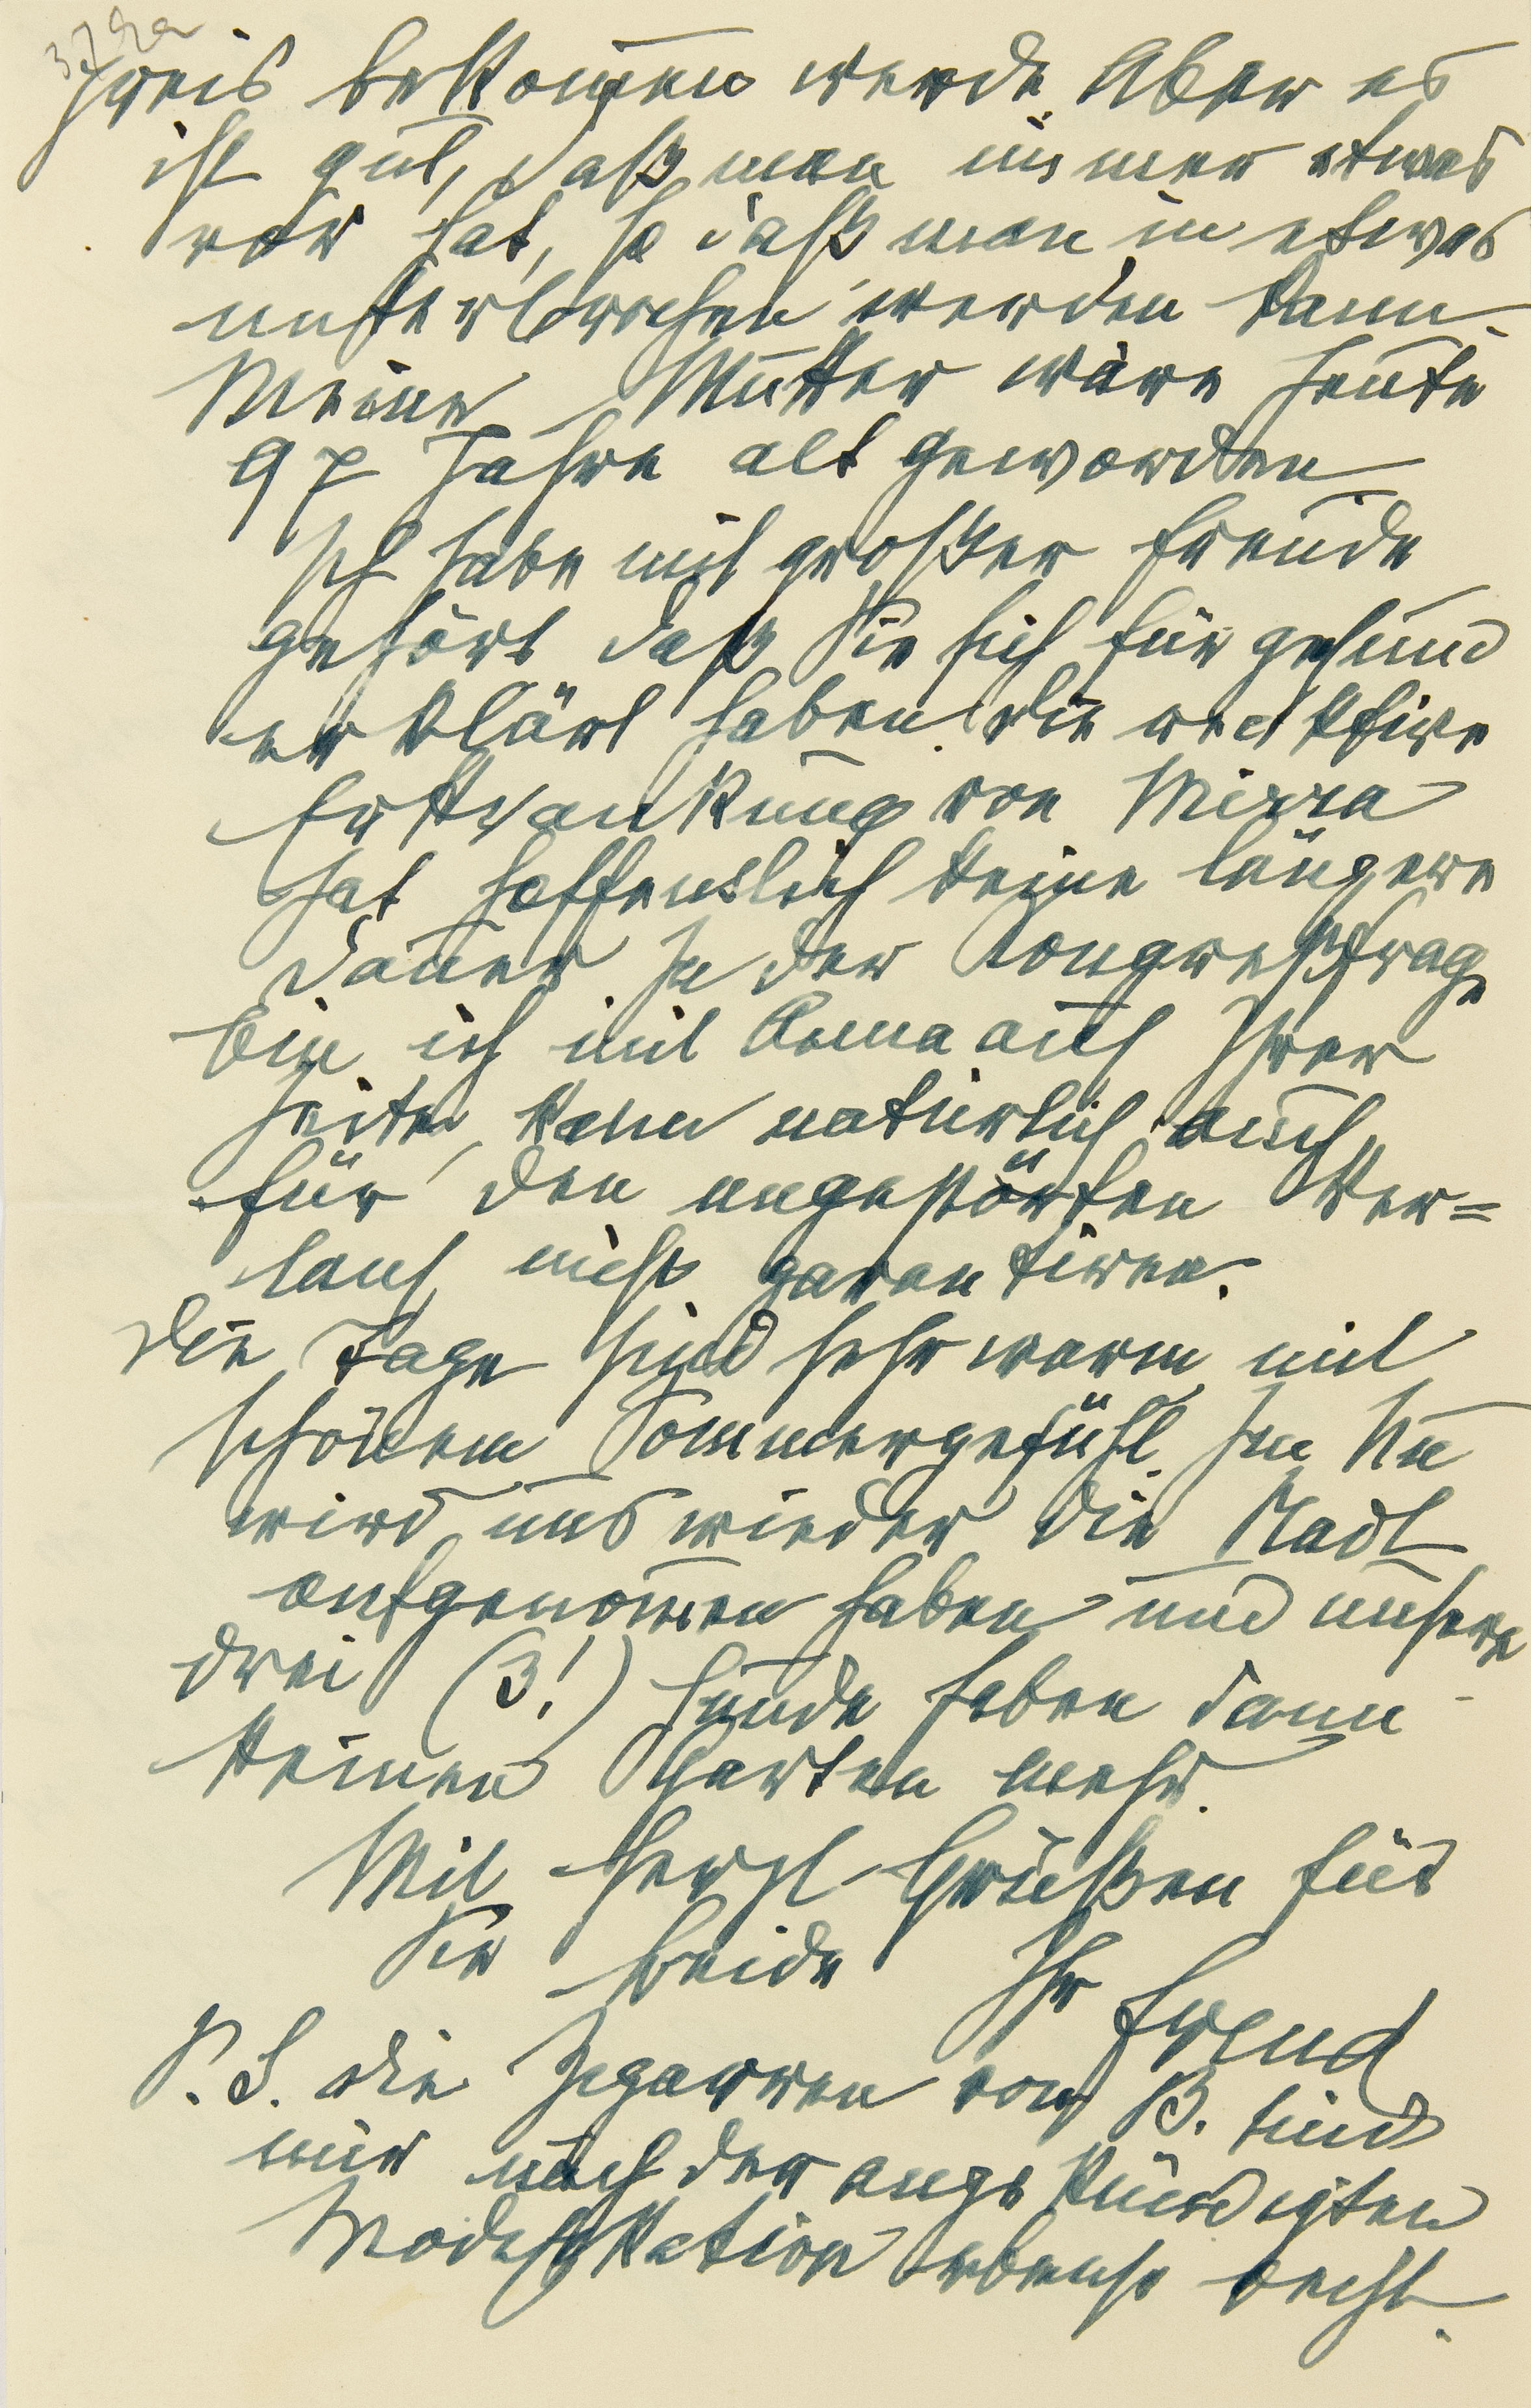 preis bekom̅en werde. Aber es
ist gut, daß man immer etwas
vor hat, so daß man in etwas
unterbrochen werden kann.
Meine Mutter wäre heute
97 Jahre alt geworden.
Ich habe mit großer Freude
gehört daß Sie sich für gesund
erklärt haben. Die reaktive
Erkrankung von Mirra
hat hoffentlich keine längere
Dauer. In der Kongreßfrage
bin ich mit Anna auf Ihrer
Seite, kann natürlich auch
für den ungestörten Ver=
lauf nicht garantiren.
Die Tage sind sehr warm mit
schönem Sommergefühl. Im Nu
wird uns wieder die Stadt
aufgenom̅en haben und unsere
drei (3!) Hunde haben dann
keinen Garten mehr.
Mit herzl Grüßen für
Sie beide Ihr Freud
P.S. Die Zigarren von B. sind
mir nach der angekündigten
Modifikation ebenso recht.